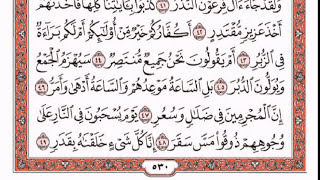 وَلَقَدْ جَآءَ ءَالَ فِرْعَوْنَ ٱلنُّذُرُ ٤١ كَذَّبُوا۟ بِـَٔايَـٰتِنَا كُلِّهَا فَأَخَذْنَـٰهُمْ
أَخْذَ عَزِيزٍ مُّقْتَدِرٍ ٤٢ أَكُفَّارُكُمْ خَيْرٌ مِّنْ أُو۟لَـٰٓئِكُمْ أَمْ لَكُم بَرَآءَةٌ
فِى ٱلزُّبُرِ ٤٣ أَمْ يَقُولُونَ نَحْنُ جَمِيعٌ مُّنتَصِرٌ ٤٤ سَيُهْزَمُ ٱلْجَمْعُ
وَيُوَلُّونَ ٱلدُّبُرَ ٤٥ بَلِ ٱلسَّاعَةُ مَوْعِدُهُمْ وَٱلسَّاعَةُ أَدْهَىٰ وَأَمَرُّ ٤٦
إِنَّ ٱلْمُجْرِمِينَ فِى ضَلَـٰلٍ وَسُعُرٍ ٤٧ يَوْمَ يُسْحَبُونَ فِى ٱلنَّارِ عَلَىٰ
وُجُوهِهِمْ ذُوقُوا۟ مَسَّ سَقَرَ ٤٨ إِنَّا كُلَّ شَىْءٍ خَلَقْنَـٰهُ بِقَدَرٍ ٤٩
٥٣٠